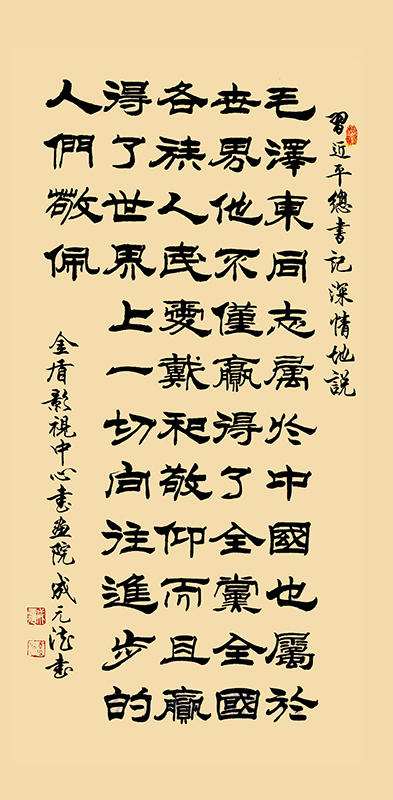 習近平總書記深情地說
毛澤東同志属於中國也屬於
世界他不僅贏得了全黨全國
各族人民愛戴和敬仰而且贏
得了世界上一切向往進步的
人們敬佩
金盾影視中心書畫院成元法書